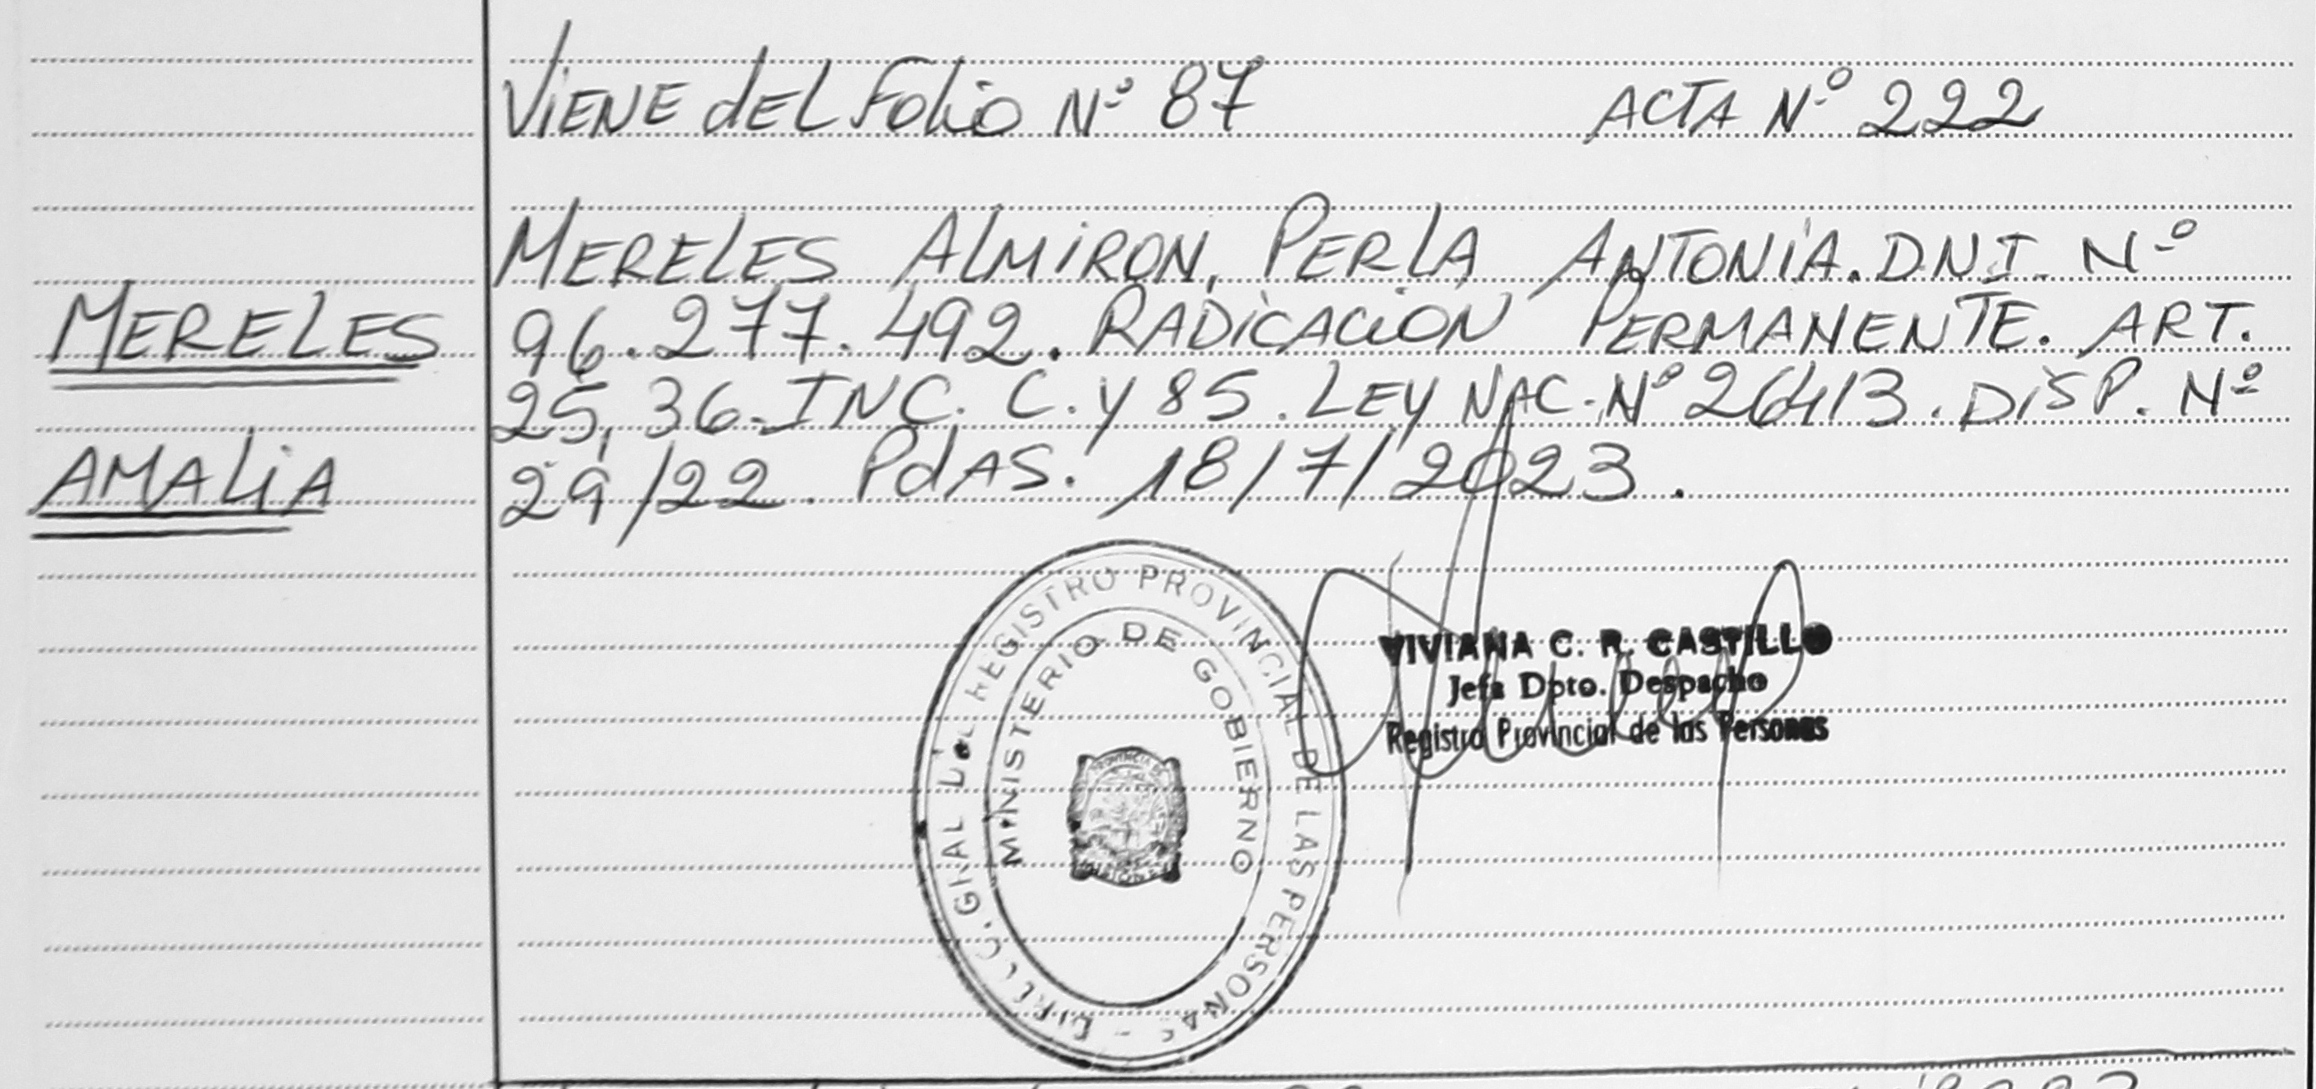 Viene del Folio Nº 87 ACTA Nº 222
MERELES ALMIRON, PERLA ANTONIA. D.N.I. Nº
96.277.492. RADICACION PERMANENTE. ART.
25, 36. INC. C. y 85. LEY NAC. Nº 26413. DISP. Nº
29/22. PdAS. 18/7/2023.
MERELES
AMALIA
DIRECC. GRAL DEL REGISTRO PROVINCIAL DE LAS PERSONAS -
MINISTERIO DE GOBIERNO
PROVINCIA DE
MISIONES
VIVIANA C. R. CASTILLO
Jefa Dpto. Despacho
Registro Provincial de las Personas